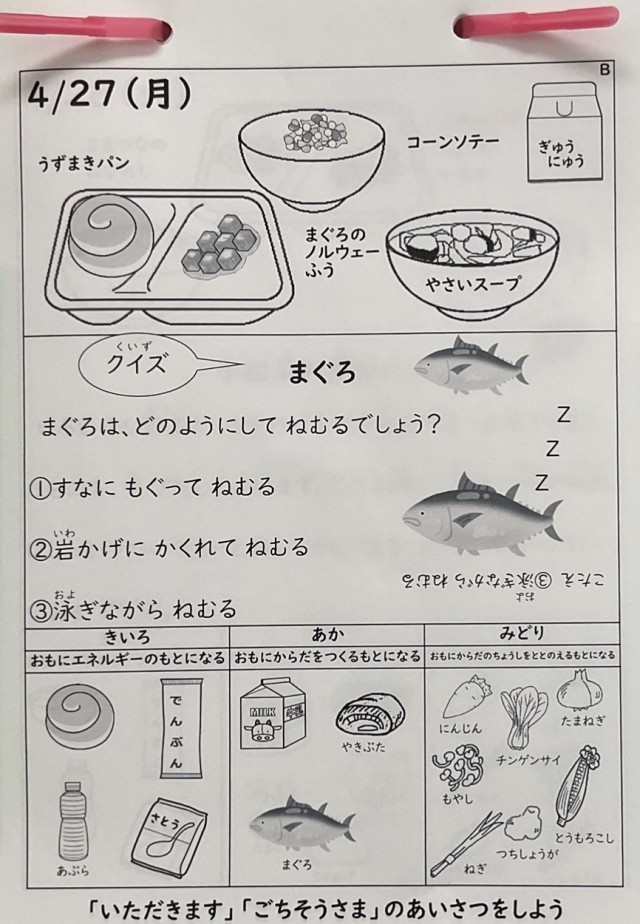 B
4/27(月)
コーンソテー
ぎゅう
にゅう
うずまきパン
まぐろの
ノルウェー
ふう
やさいスープ
くいず
クイズ
まぐろ
まぐろは、どのようにして ねむるでしょう?
Z
Z
Z
①すなに もぐって ねむる
いわ
②岩かげに かくれて ねむる
およ
③泳ぎながら ねむる
こたえ ③泳ぎながら ねむる
およ
きいろ
あか
みどり
おもにエネルギーのもとになる
おもにからだをつくるもとになる
おもにからだのちょうしをととのえるもとになる
でんぷん
あぶら
さとう
MILK
牛乳
やきぶた
まぐろ
にんじん
チンゲンサイ
たまねぎ
もやし
とうもろこし
つちしょうが
ねぎ
「いただきます」「ごちそうさま」のあいさつをしよう